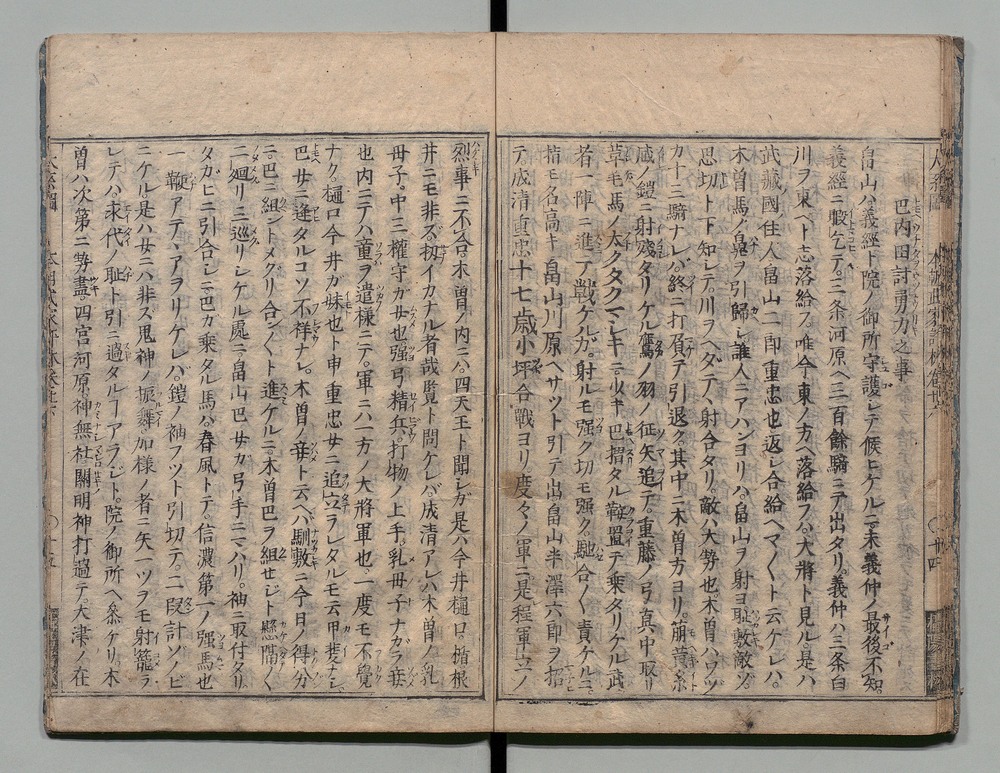 巴内田討勇力之事
畠山ハ義經ト院ノ御所守護シテ候ヒケルニ未義仲ノ最後不知
義經ニ暇乞テ三条河原ヘ三百餘騎ニテ出タリ義仲ハ三条白
川ヲ東ヘト志落給フ唯今東ノ方ヘ落給フハ大將ト見ル是ハ
武藏國住人畠山二郎重忠也返シ合給ヘマくト云ケレバ
木曽馬ノ鼻ヲ引歸シ誰人ニアハンヨリハ畠山ヲ射ヨ耻敷敵ゾ
思切ト下知シテ川ヲヘダテヽ射合タリ敵ハ大勢也木曽ハワヅ
カ十三騎ナレバ終ニ打負テ引退ク其中ニ木曽方ヨリ萠黄糸
威ノ鎧ニ射殘タリケル鷹ノ羽ノ征矢追テ重藤ノ弓真中取リ
草毛馬ノ太クタクマシキニ少キ巴摺タル鞍置テ乗タリケル武
者一陣ニ進テ戰ケルガ射ルモ强ク切モ强ク馳合く責ケルニ
指モ名高キ畠山川原ヘサツト引テ出畠山半澤六郎ヲ招
テ成清重忠十七歳小坪合戰ヨリ度々ノ軍ニ是程軍立ノ
烈事ニ不合木曽ノ内ニハ四天王ト聞シガ是ハ今井樋口楯根
井ニモ非ズ扨イカナル者哉覧ト問ケレバ成清アレハ木曽ノ乳
母子中三權守ガ女也强弓精兵打物ノ上手乳母子ナガラ妾
也内ニテハ童ヲ遣様ニテ軍ニハ一方ノ大將軍也一度モ不覺
ナク樋口今井ガ妹也ト申重忠女ニ追立ラレタルモ云甲斐ナシ
巴女ニ逢タルコソ不祥ナレ木曽ノ妾ト云ヘバ馴敷ニ今日ノ得分
ニ巴ニ組ントメクリ合ンくト進ケルニ木曽巴ヲ組セジト懸隔く
二廻リ三巡リシケル處ニ畠山巴女ガ弓手ニマハリ袖ニ取付タリ
タカヒニ引合シニ巴カ乗タル馬ハ春風トテ信濃第一ノ强馬也
一鞭アテヽアヲリケレバ鎧ノ袖フツト引切テ二段計ソノビ
ニケル是ハ女ニハ非ズ鬼神ノ振舞加様ノ者ニ矢一ツヲモ射籠ラ
レテハ永代ノ耻ト引ニ過タルーアラジト院ノ御所ヘ参ケリ木
曽ハ次第ニ勢盡四宮河原神無社關明神打過テ大津ノ在